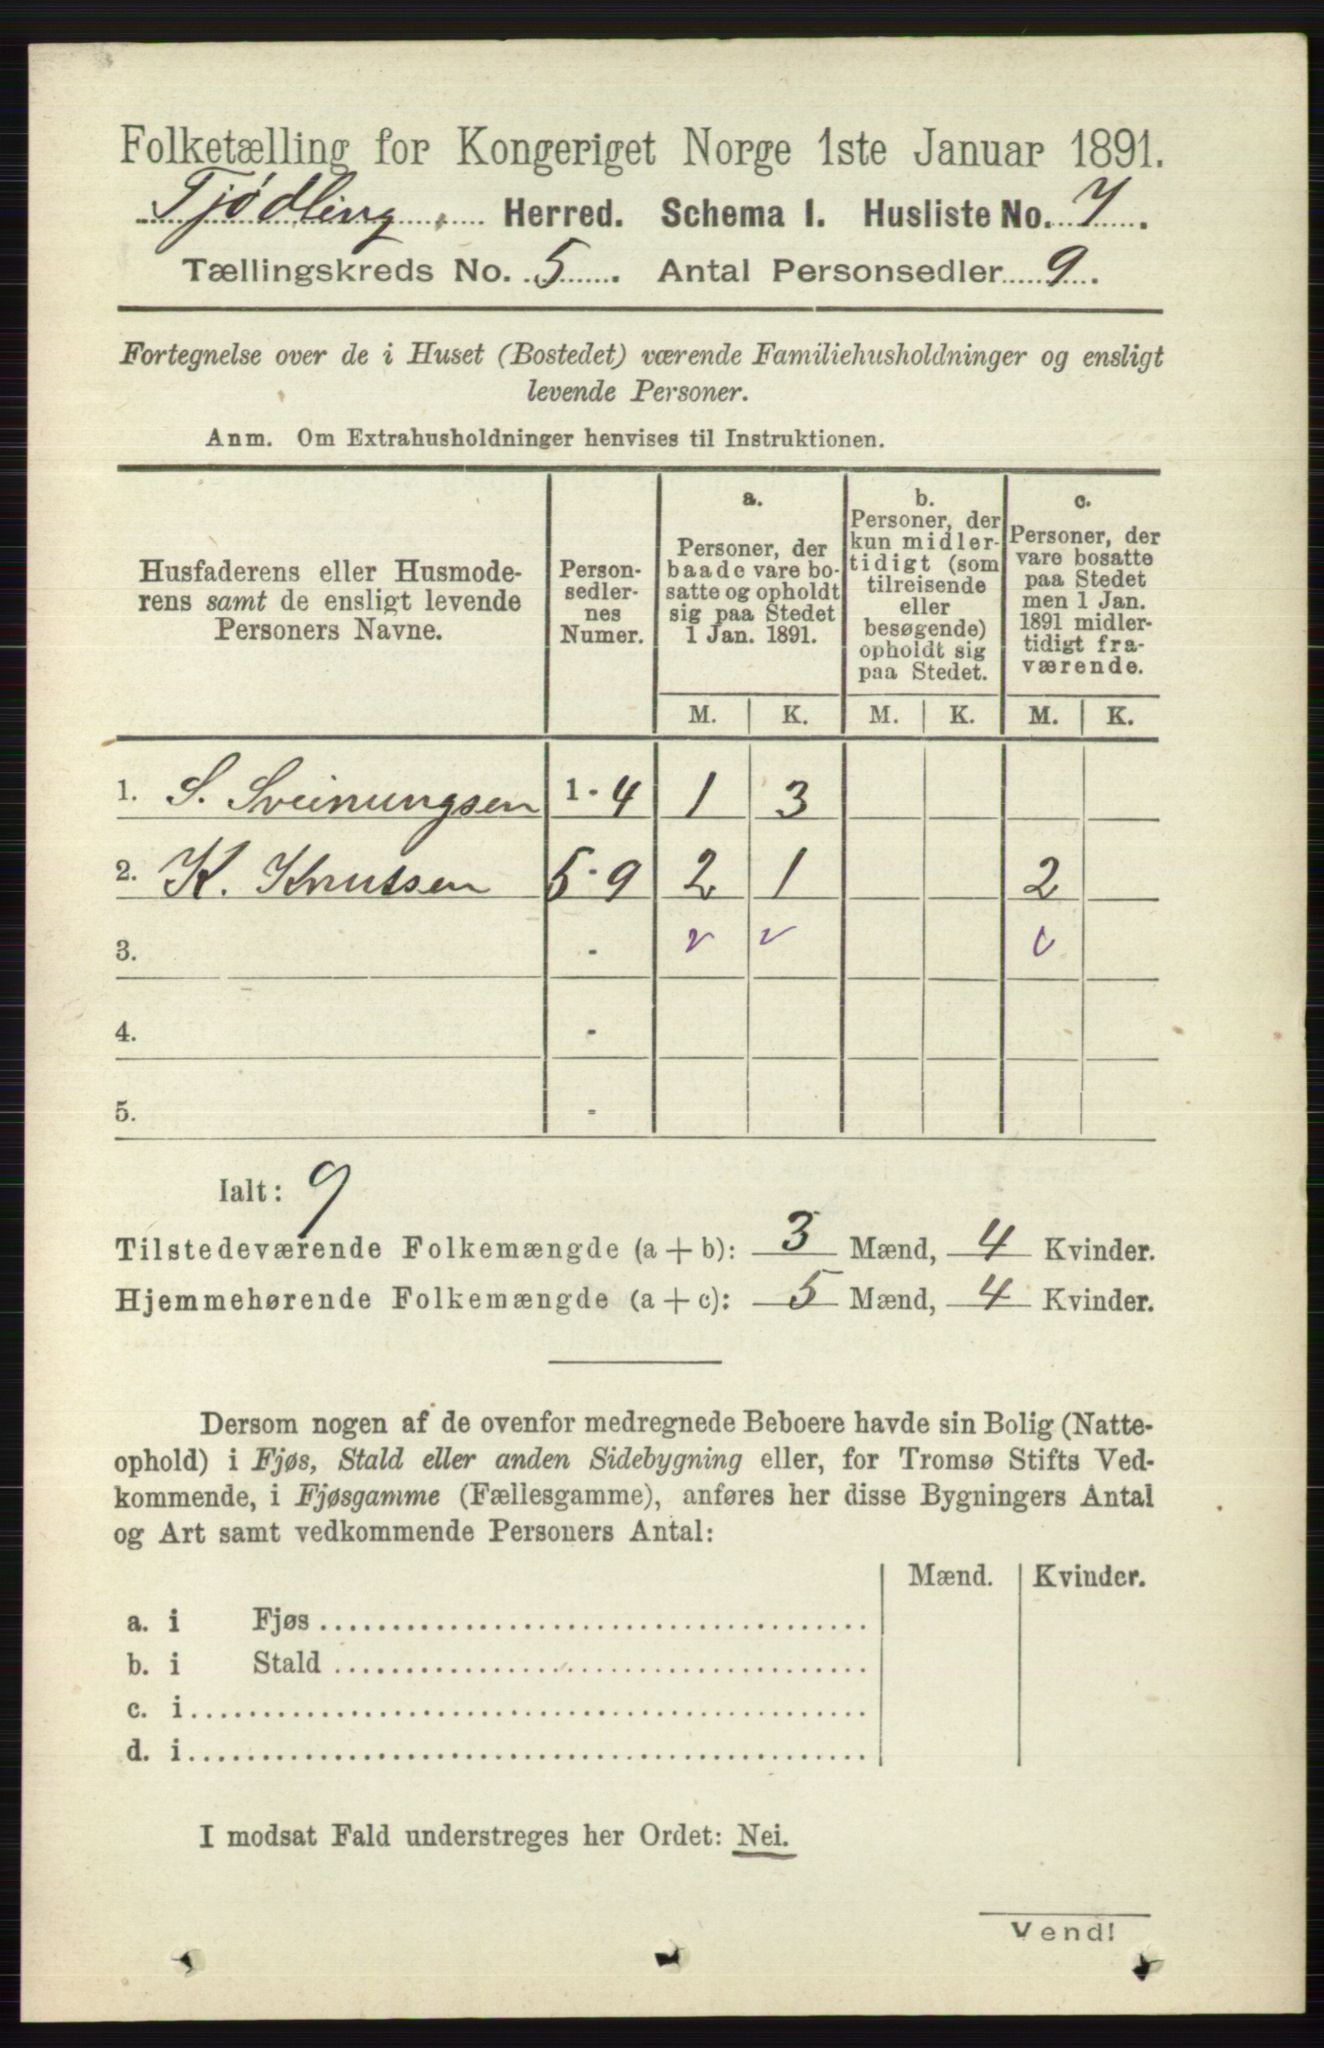 Folketælling for Kongeriget Norge 1ste Januar 1891.
Tjødling Herred. Schema I. Husliste No. 7.
Tællingskreds No. 5. Antal Personsedler 9.
Fortegnelse over de i Huset (Bostedet) værende Familiehusholdninger og ensligt
levende Personer.
Anm. Om Extrahusholdninger henvises til Instruktionen.
Husfaderens eller Husmode-
rens samt de ensligt levende
Personers Navne.
Person-
sedler-
nes
Numer.
a.
Personer, der
baade vare bo-
satte og opholdt
sig paa Stedet
1 Jan. 1891.
b.
Personer, der
kun midler-
tidigt (som
tilreisende
eller
besøgende)
opholdt sig
paa Stedet.
c.
Personer, der
vare bosatte
paa Stedet
men 1 Jan.
1891 midler-
tidigt fra-
værende.
M. K. M. K. M. K.
1. S. Sveinungsen 1-4 1 3
2. K. Knutsen 5-9 2 1 2
3. -
4. -
5. -
Ialt: 9
Tilstedeværende Folkemængde (a+b): 3 Mænd, 4 Kvinder.
Hjemmehørende Folkemængde (a+c): 5 Mænd, 4 Kvinder.
Dersom nogen af de ovenfor medregnede Beboere havde sin Bolig (Natte-
ophold) i Fjøs, Stald eller anden Sidebygning eller, for Tromsø Stifts Ved-
kommende, i Fjøsgamme (Fællesgamme), anføres her disse Bygningers Antal
og Art samt vedkommende Personers Antal:
Mænd. Kvinder.
a. i Fjøs
b. i Stald
c. i
d. i
I modsat Fald understreges her Ordet: Nei.
Vend!